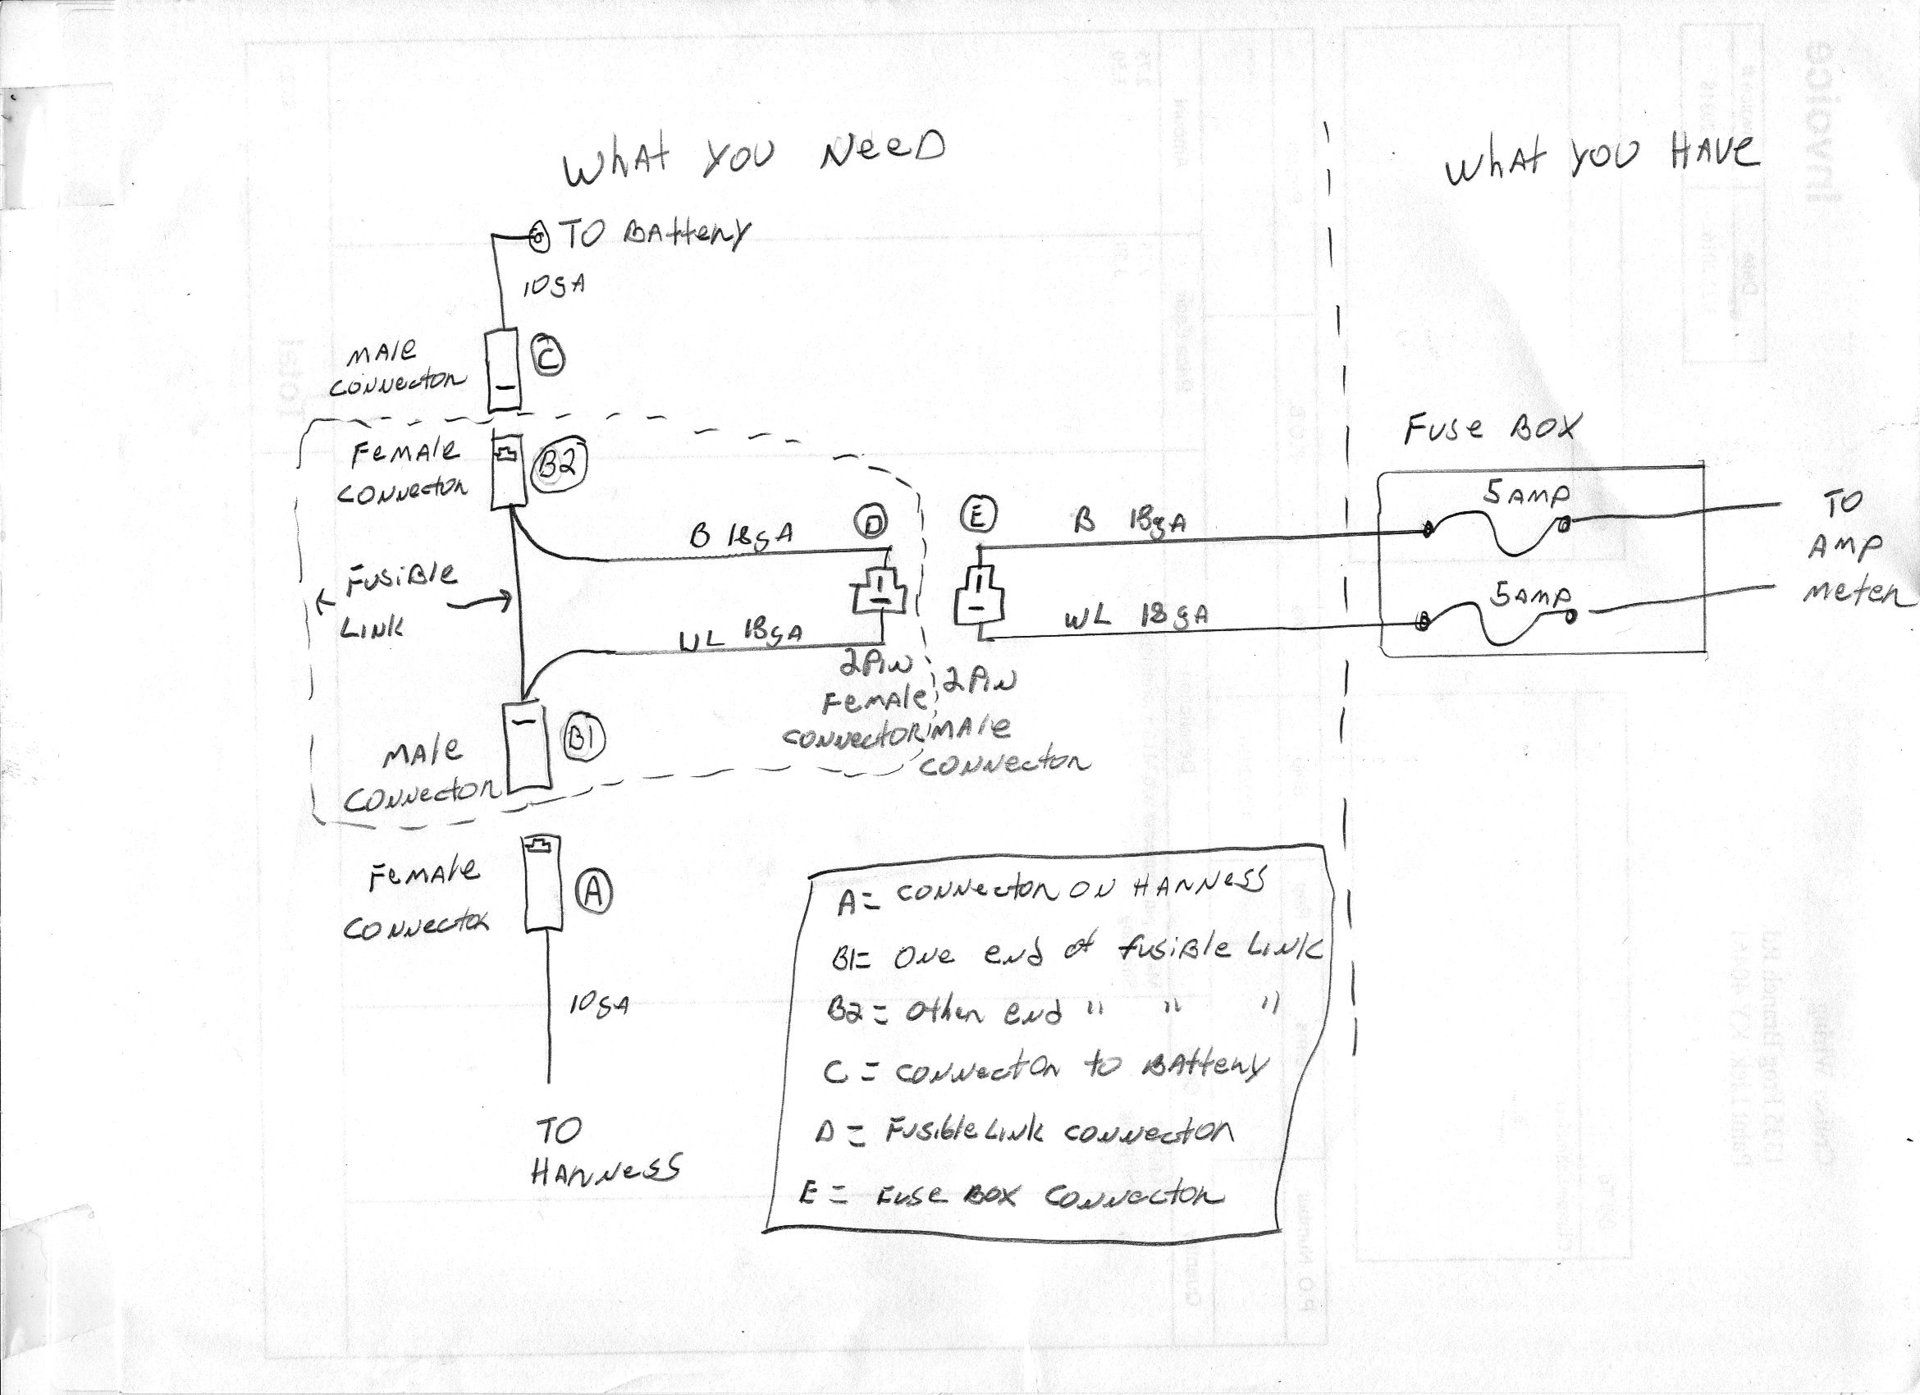 WhAt YOU NeeD
WhAt YOU HAVe
TO BAtteRy
10gA
MAle
CONNectoR
C
FeMAle
CONNectoR
B2
FUSiBle
LINK
B 18gA
D
WL 18gA
2PiN
FeMAle
CONNectoR
E
B 18gA
WL 18gA
2PiN
MAle
CONNectoR
FUSe BOX
5AMP
5AMP
TO
AMP
MeteR
MAle
CONNectoR
B1
FeMAle
CONNectoR
A
10gA
TO
HARNeSS
A= CONNectoR ON HARNeSS
B1= ONe eNd of fUSiBle LiNk
B2= OtheR eNd " " "
C = CONNectoR to BAtteRy
D = FUSible LiNK CONNectoR
E = FUSe BOX CONNectoR
Invoice
Date
Total